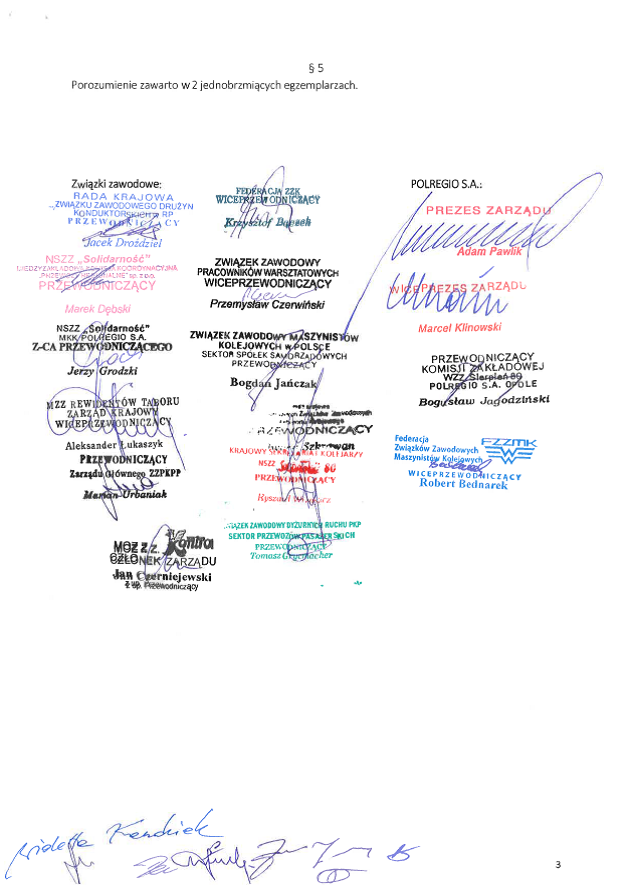 § 5
Porozumienie zawarto w 2 jednobrzmiących egzemplarzach.
Związki zawodowe:
RADA KRAJOWA
„ZWIĄZKU ZAWODOWEGO DRUŻYN
KONDUKTORSKICH w RP
PRZEWODNICZĄCY
Jacek Droździel
NSZZ „Solidarność"
PRZEWODNICZĄCY
Marek Dębski
NSZZ „Solidarność"
MKK POLREGIO S.A.
Z-CA PRZEWODNICZĄCEGO
Jerzy Grodzki
MZZ REWIDENTÓW TABORU
ZARZĄD KRAJOWY
WICEPRZEWODNICZĄCY
Aleksander Łukaszyk
PRZEWODNICZĄCY
Zarządu Głównego ZZPKPP
Marian Urbaniak
MOZ Z.Z. Kontra
CZŁONEK ZARZĄDU
Jan Czerniejewski
z up. Przewodniczący
FEDERACJA ZZK
WICEPRZEWODNICZĄCY
Krzysztof
ZWIĄZEK ZAWODOWY
PRACOWNIKÓW WARSZTATOWYCH
WICEPRZEWODNICZĄCY
Przemysław Czerwiński
ZWIĄZEK ZAWODOWY MASZYNISTÓW
KOLEJOWYCH w POLSCE
SEKTOR SPÓŁEK SAMORZĄDOWYCH
PRZEWODNICZĄCY
Bogdan Jańczak
PRZEWODNICZĄCY
KRAJOWY SEKRETARIAT KOLEJARZY
NSZZ 80
PRZEWODNICZĄCY
Ryszard
ZWIĄZEK ZAWODOWY DYŻURNYCH RUCHU PKP
SEKTOR PRZEWOZÓW PASAŻERSKICH
PRZEWODNICZĄCY
Tomasz
POLREGIO S.A.:
PREZES ZARZĄDU
Adam Pawlik
WICEPREZES ZARZĄDU
Marcel Klinowski
PRZEWODNICZĄCY
KOMISJI ZAKŁADOWEJ
WZZ Sierpień 80
POLREGIO S.A. OPOLE
Bogusław Jagodziński
Federacja
Związków Zawodowych
Maszynistów Kolejowych
FZZMK
WICEPRZEWODNICZĄCY
Robert Bednarek
3